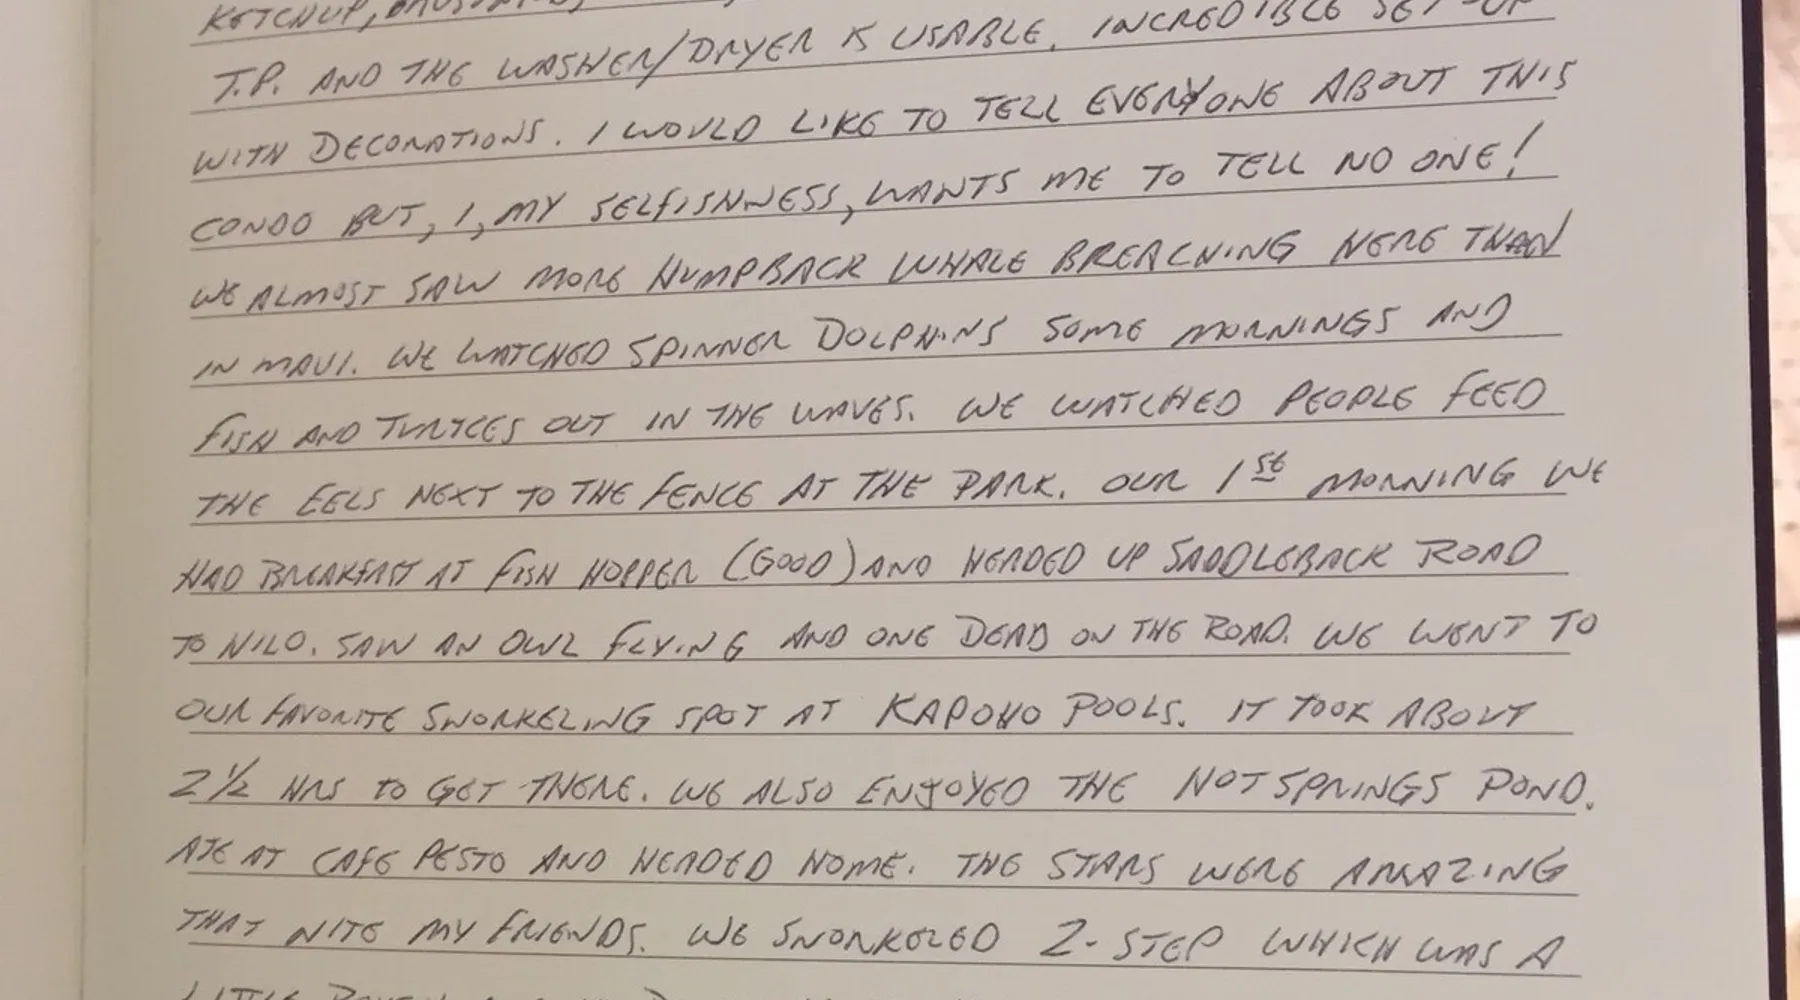 KETCHUP,
T.P. AND THE WASHER/DRYER IS USABLE. INCREDIBLE SET-UP
WITH DECORATIONS. I WOULD LIKE TO TELL EVERYONE ABOUT THIS
CONDO BUT, I, MY SELFISHNESS, WANTS ME TO TELL NO ONE!
WE ALMOST SAW MORE HUMPBACK WHALE BREACHING HERE THAN
IN MAUI. WE WATCHED SPINNER DOLPHINS SOME MORNINGS AND
FISH AND TURTLES OUT IN THE WAVES. WE WATCHED PEOPLE FEED
THE EELS NEXT TO THE FENCE AT THE PARK. OUR 1st MORNING WE
HAD BREAKFAST AT FISH HOPPER (GOOD) AND HEADED UP SADDLEBACK ROAD
TO HILO. SAW AN OWL FLYING AND ONE DEAD ON THE ROAD. WE WENT TO
OUR FAVORITE SNORKELING SPOT AT KAPOHO POOLS. IT TOOK ABOUT
2 1/2 HRS TO GET THERE. WE ALSO ENJOYED THE HOTSPRINGS POND.
ATE AT CAFE PESTO AND HEADED HOME. THE STARS WERE AMAZING
THAT NITE MY FRIENDS. WE SNORKELED 2-STEP WHICH WAS A
LITTLE